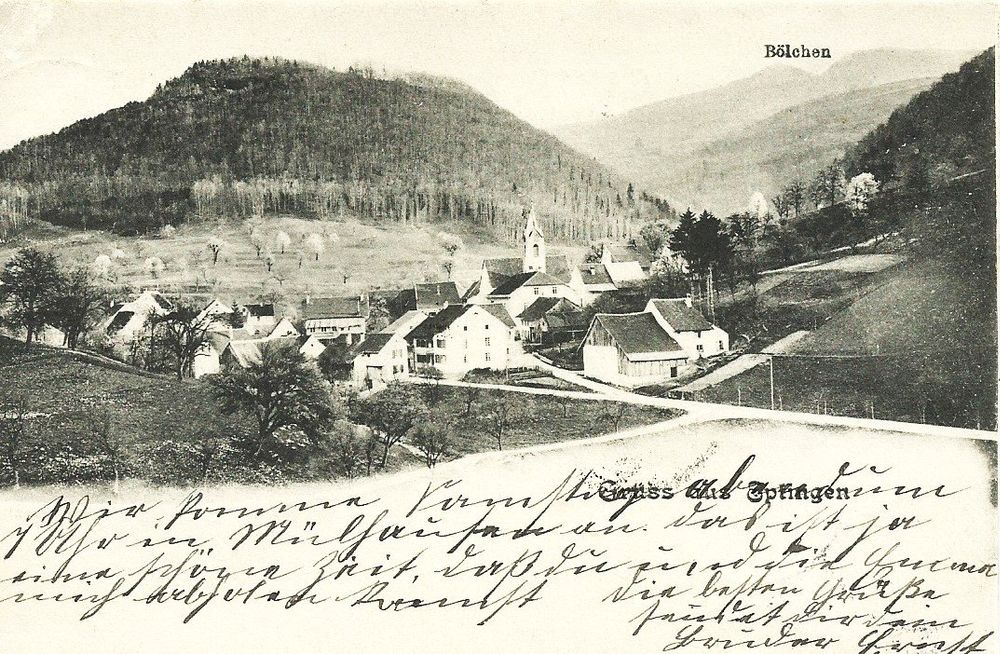 Bölchen
Gruss aus Eptingen
Wir komme Samstig abend um
7 Uhr in Mülhausen an. das ist ja
eine schöne Zeit, daß du und die Emma
mich abholen kannst
die besten Grüße
sendet dir dein
Bruder Ernst